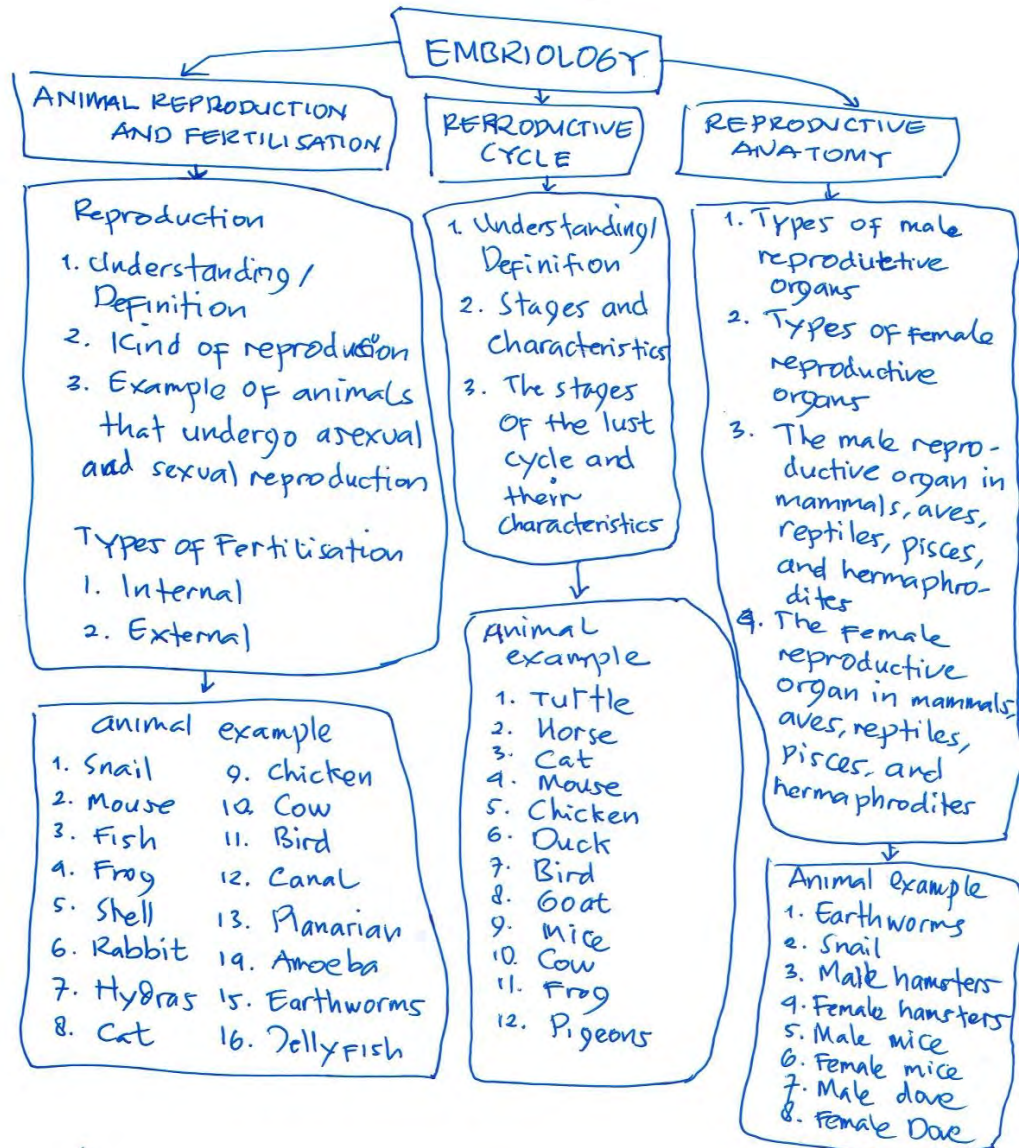 EMBRIOLOGY
ANIMAL REPRODUCTION
AND FERTILISATION
Reproduction
1. Understanding/
Definition
2. Kind of reproduction
3. Example of animals
that undergo asexual
and sexual reproduction
Types of Fertilisation
1. Internal
2. External
animal example
1. Snail
2. Mouse
3. Fish
4. Frog
5. Shell
6. Rabbit
7. Hydras
8. Cat
9. Chicken
10. Cow
11. Bird
12. Canal
13. Planarian
14. Amoeba
15. Earthworms
16. Jellyfish
REPRODUCTIVE
CYCLE
1. Understanding/
Definition
2. Stages and
characteristics
3. The stages
of the lust
cycle and
their
characteristics
Animal
example
1. Turtle
2. Horse
3. Cat
4. Mouse
5. Chicken
6. Duck
7. Bird
8. Goat
9. Mice
10. Cow
11. Frog
12. Pigeons
REPRODUCTIVE
ANATOMY
1. Types of male
reproductive
organs
2. Types of female
reproductive
organs
3. The male repro-
ductive organ in
mammals, aves,
reptiles, pisces,
and hermaphro-
dites
4. The female
reproductive
organ in mammals,
aves, reptiles,
pisces, and
hermaphrodites
Animal example
1. Earthworms
2. Snail
3. Male hamsters
4. Female hamsters
5. Male mice
6. Female mice
7. Male dove
8. Female Dove